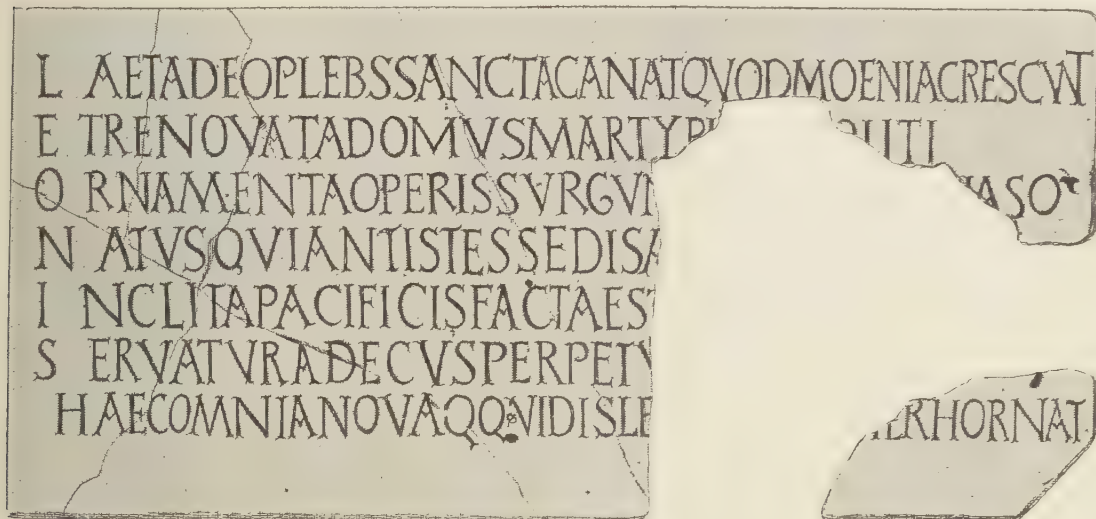 L AETADEOPLEBSSANCTACANATQVODMOENIACRESCVNT
E TRENOVATADOMVSMARTYRI
O RNAMENTAOPERISSVRGVN ASO
N ATVSQVIANTISTESSEDISA
I NCLITAPACIFICISFACTAEST
S ERVATVRADECVSPERPETV
HAECOMNIANOVAQQVIDISLE ERHORNAT